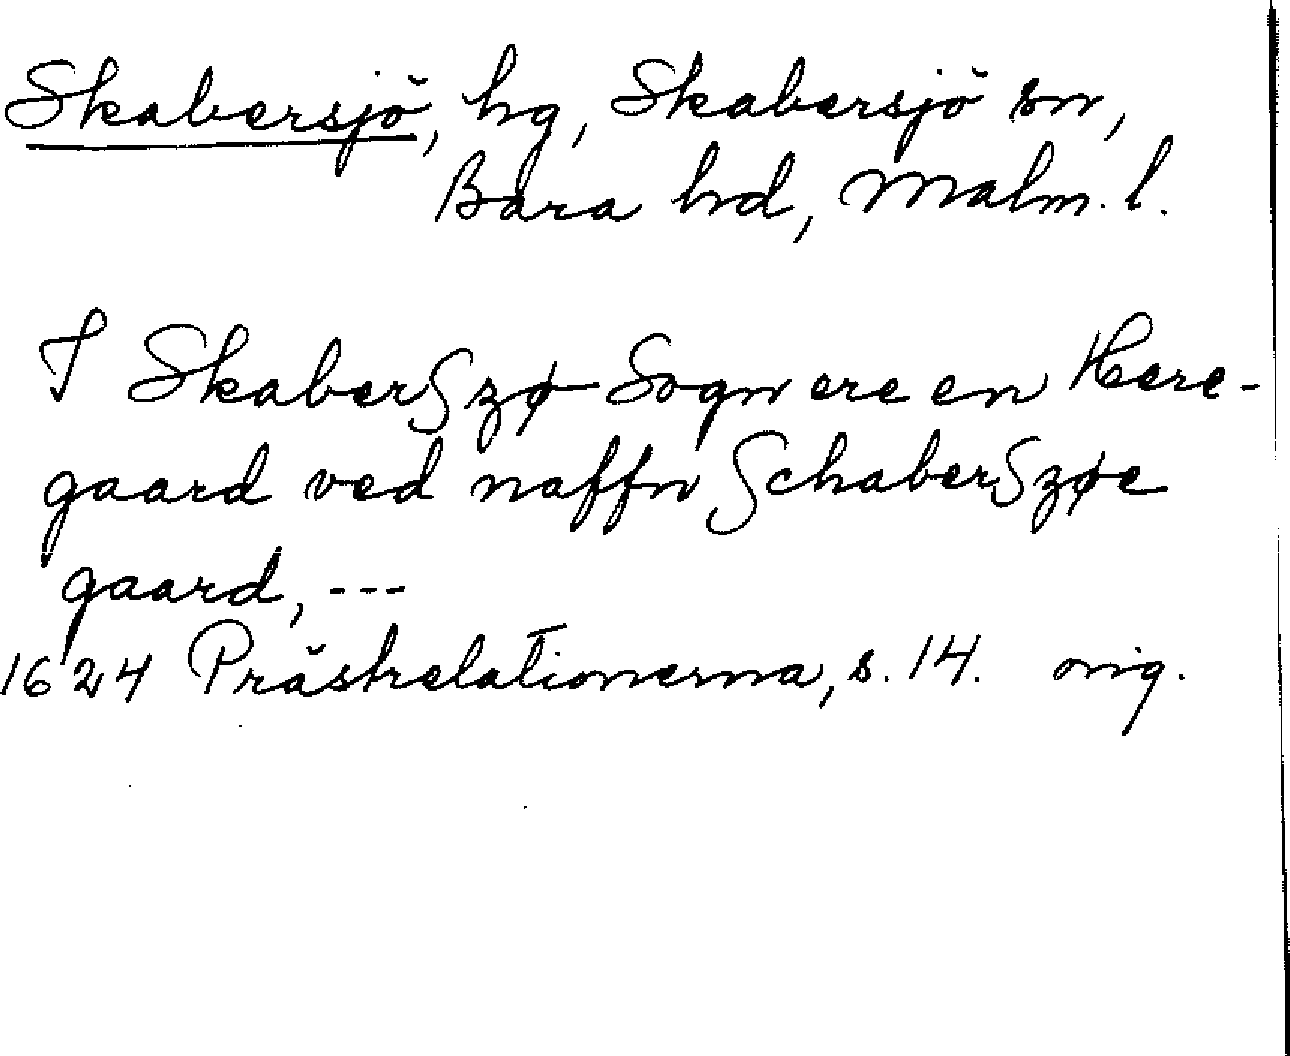 Skabersjö, hg, Skabersjö sn,
Bara hd, Malm. l.
I SkaberSzø Sogn ere en Here-
gaard ved naffn SchaberSzøe
gaard, ---
1624 Prästrelationerna, s. 14. orig.